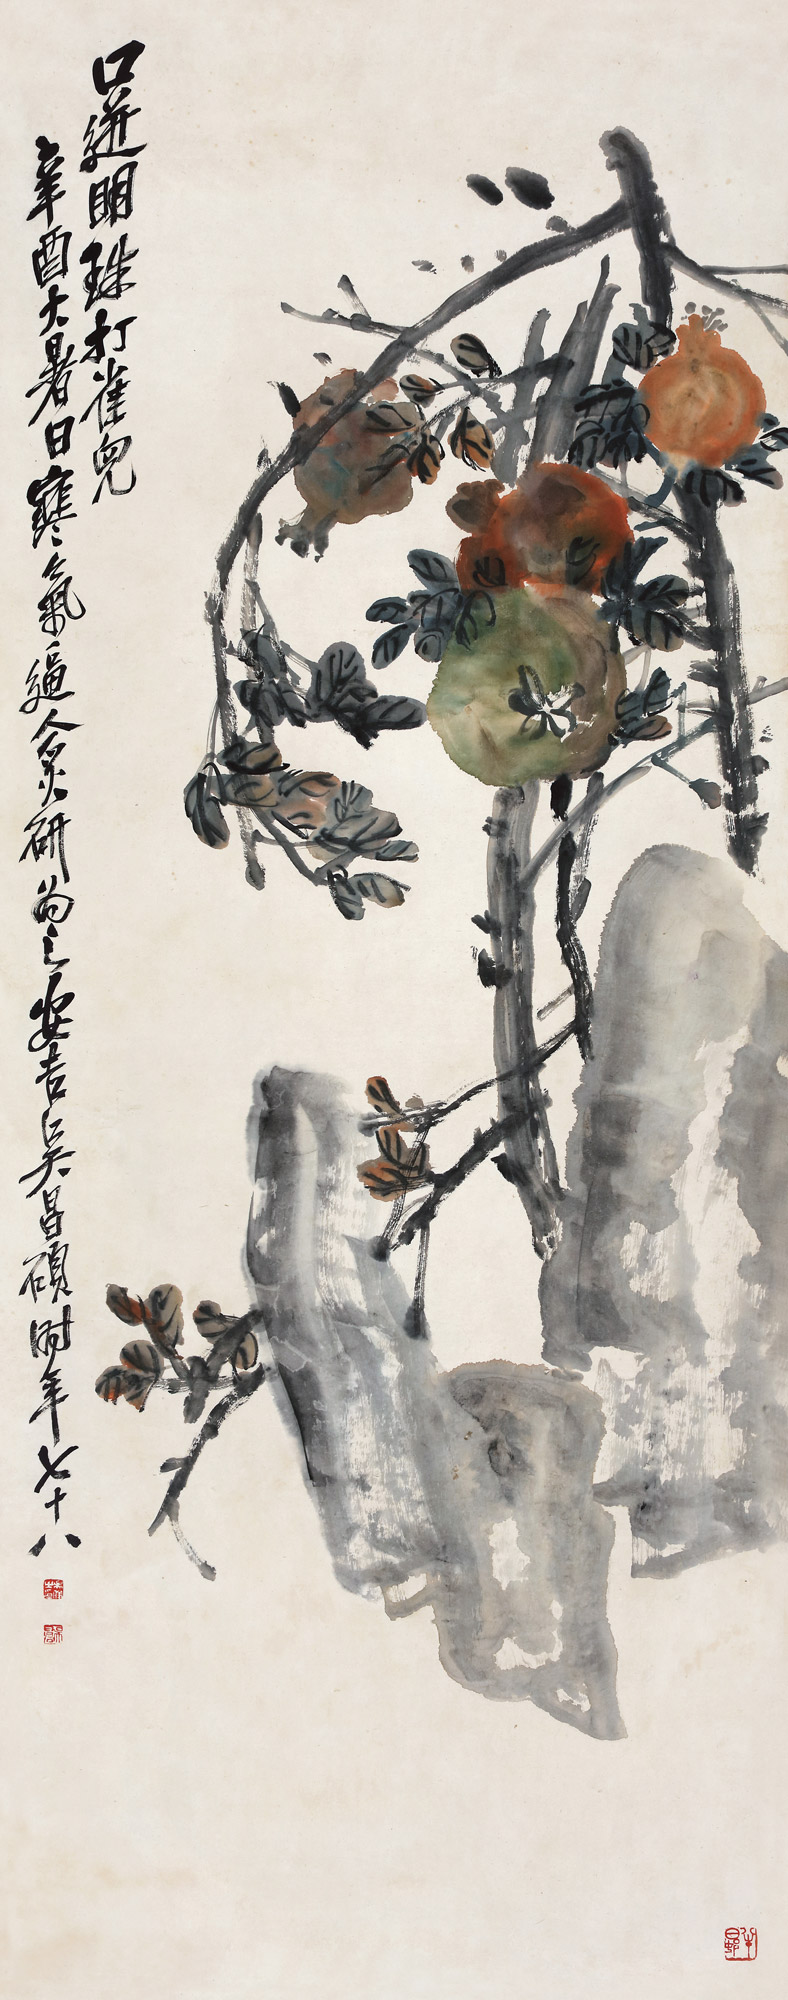 口迸明珠打雀兒
辛酉大暑日寒氣逼人炙研為之安吉吳昌碩時年七十八